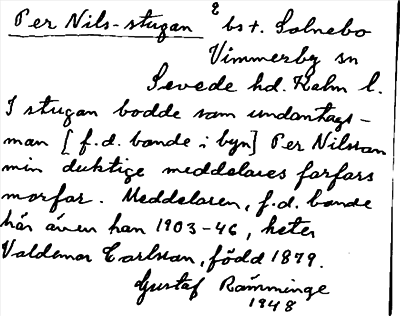 Per Nils-stugan 2 bs t. Solnebo
Vimmerby sn
Sevede hd. Kalm l.
I stugan bodde som undantags-
man [f.d. bonde i byn] Per Nilsson
min duktige meddelares farfars
morfar. Meddelaren, f.d. bonde
här även han 1903-46, heter
Valdemar Carlsson, född 1879.
Gustaf Ramminge
1948